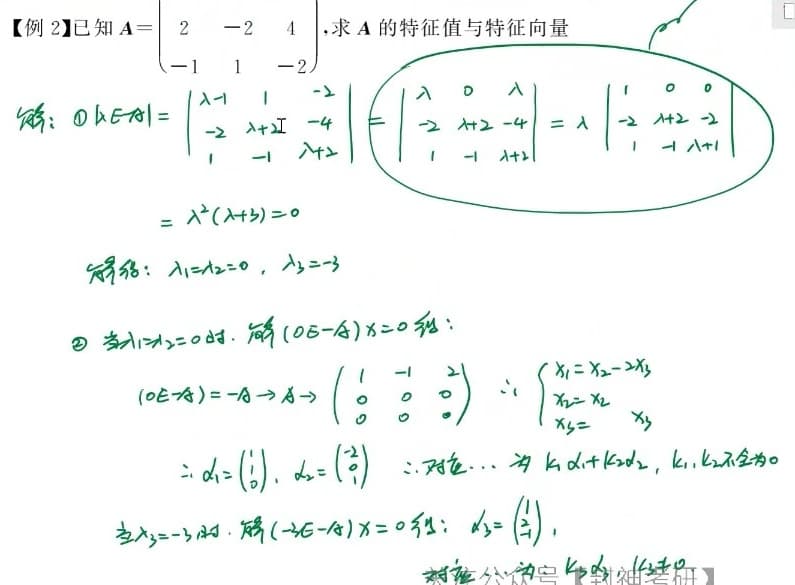 【例2】已知 A= ( 2 -2 4 ; -1 1 -2 ), 求 A 的特征值与特征向量
解: ① |λE-A| = | λ-1 1 -2 ; -2 λ+2 -4 ; 1 -1 λ+2 | = | λ 0 λ ; -2 λ+2 -4 ; 1 -1 λ+2 | = λ | 1 0 0 ; -2 λ+2 -2 ; 1 -1 λ+1 |
= λ²(λ+3)=0
解得: λ₁=λ₂=0, λ₃=-3
② 当λ₁=λ₂=0时. 解(0E-A)x=0得:
(0E-A)=-A→A→ ( 1 -1 2 ; 0 0 0 ; 0 0 0 ) ∴ { x₁=x₂-2x₃ ; x₂=x₂ ; x₃= x₃
∴ α₁=(1 1 0), α₂=(-2 0 1) ∴对应… 为 k₁α₁+k₂α₂, k₁,k₂不全为0
当λ₃=-3时. 解(-3E-A)x=0得: α₃=(1 2 -1),
对应…为: k₃α₃, k₃≠0
公众号【封神考研】